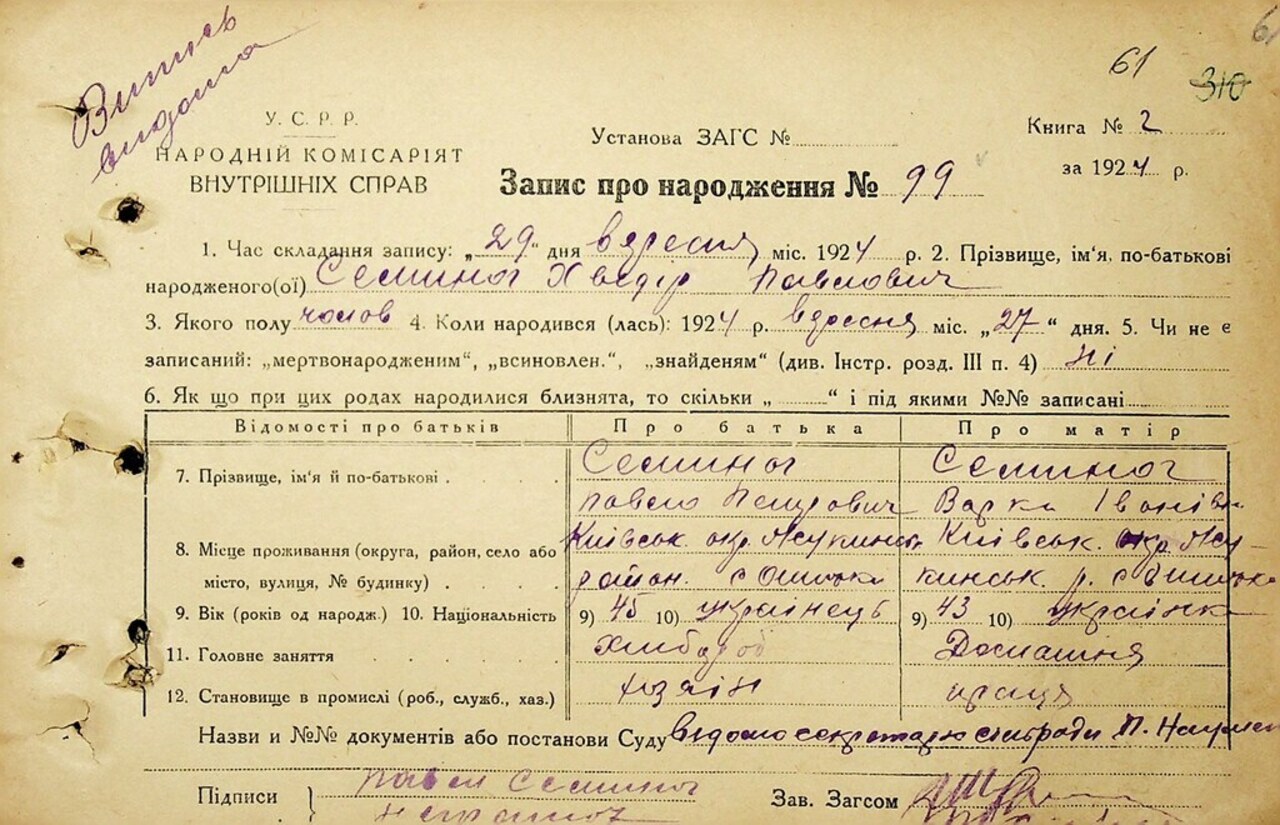 Випись
видома
61
310
У. С. Р. Р.
НАРОДНІЙ КОМІСАРІЯТ
ВНУТРІШНІХ СПРАВ
Установа ЗАГС №
Книга № 2
за 1924 р.
Запис про народження № 99
1. Час складання запису: „29“ дня вересня міс. 1924 р. 2. Прізвище, ім'я, по-батькові
народженого(ої) Семиног Хведір Павлович
3. Якого полу чолов 4. Коли народився (лась): 1924 р. вересня міс. „27“ дня. 5. Чи не є
записаний: „мертвонародженим“, „всиновлен.“, „знайденям“ (див. Інстр. розд. III п. 4) ні
6. Як що при цих родах народилися близнята, то скільки „ “ і під якими №№ записані
Відомості про батьків Про батька Про матір
7. Прізвище, ім'я й по-батькові Семиног Семиног
Павло Петрович Варка Іванівн
8. Місце проживання (округа, район, село або Київськ. окр. Київськ. окр.
місто, вулиця, № будинку) район. с р. с
9. Вік (років од народж.) 10. Національність 9) 45 10) українець 9) 43 10) українка
11. Головне заняття Хлібороб Домашня
12. Становище в промислі (роб., служб., хаз.) хозяін праця
Назви и №№ документів або постанови Суду ведомо секретарю сільради П.
Підписи Павел Семиног
Зав. Загсом